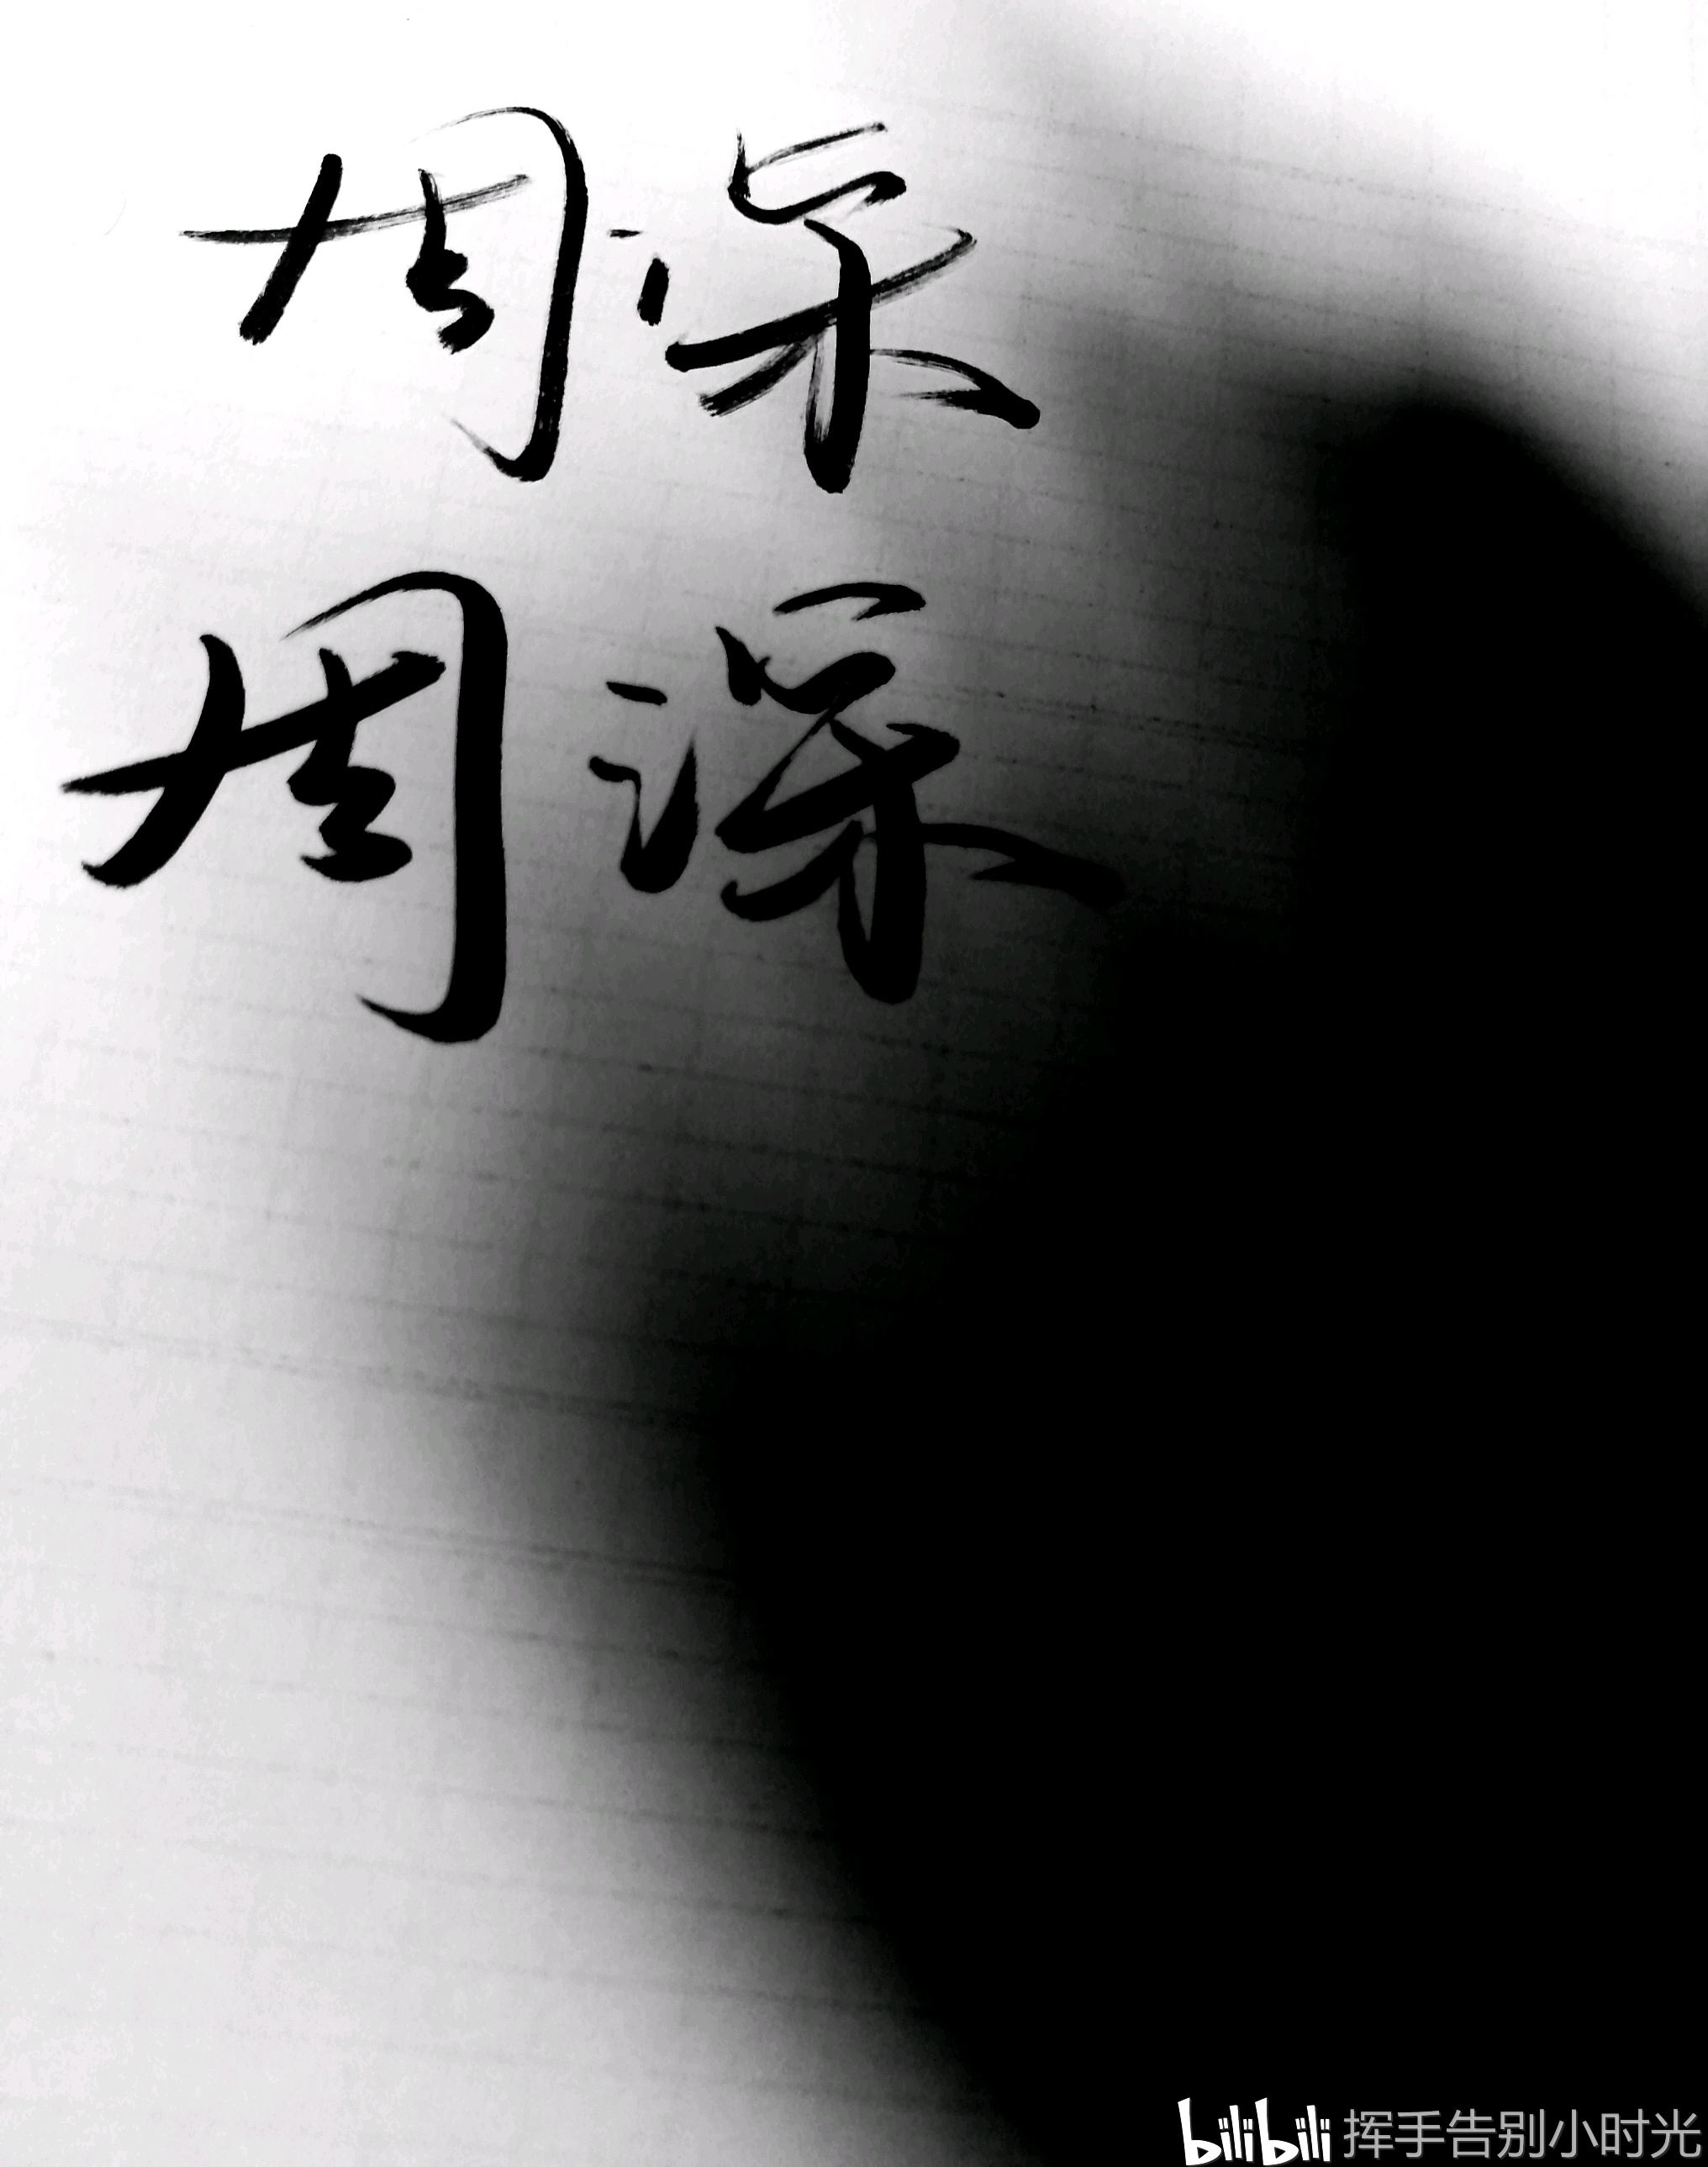 周深
周深
bilibili 挥手告别小时光